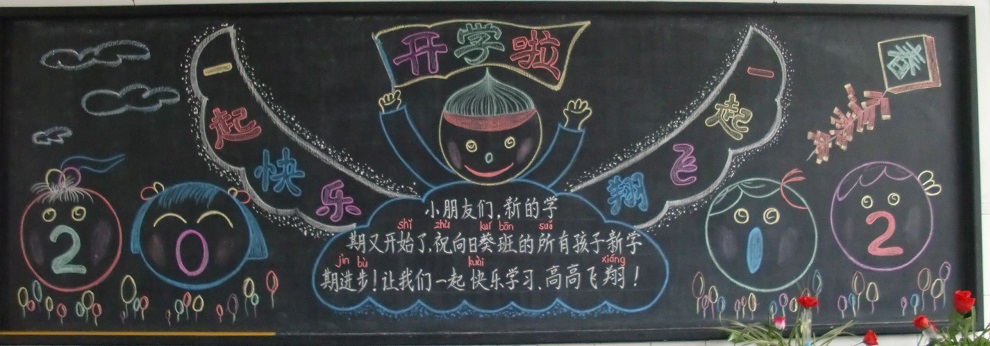 开学啦
春
一起快乐
一起飞翔
2
0
1
2
小朋友们,新的学
shǐ zhù kuí bān suǒ
期又开始了,祝向日葵班的所有孩子新学
jìn bù kuài xiáng
期进步!让我们一起快乐学习,高高飞翔!